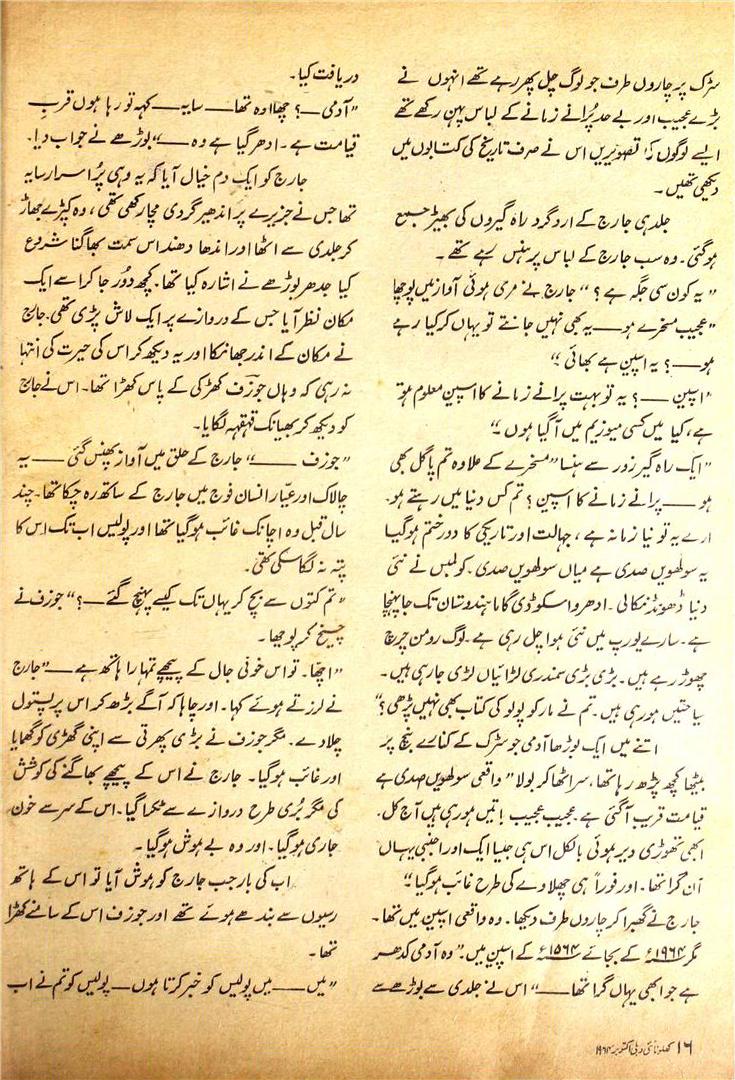 سڑک پر چاروں طرف جو لوگ چل پھر رہے تھے انہوں نے
بڑے عجیب اور بے حد پُرانے زمانے کے لباس پہن رکھے تھے
ایسے لوگوں کی تصویریں اس نے صرف تاریخ کی کتابوں میں
دیکھی تھیں۔
جلد ہی جارج کے اردگرد راہ گیروں کی بھیڑ جمع
ہوگئی۔ وہ سب جارج کے لباس پر ہنس رہے تھے۔
"یہ کون سی جگہ ہے؟" جارج نے مری ہوئی آواز میں پوچھا
"عجیب مسخرے ہو — یہ بھی نہیں جانتے تو یہاں کر کیا رہے
ہو —؟ یہ اسپین ہے بھائی"
"اسپین —؟ یہ تو بہت پرانے زمانے کا اسپین معلوم ہوتا
ہے، کیا میں کسی میوزیم میں آگیا ہوں"
"ایک راہ گیر زور سے ہنسا "مسخرے کے علاوہ تم پاگل بھی
ہو — پرانے زمانے کا اسپین؟ تم کس دنیا میں رہتے ہو۔
ارے یہ تو نیا زمانہ ہے، جہالت اور تاریکی کا دور ختم ہوگیا
یہ سولھویں صدی ہے میاں سولھویں صدی۔ کولمبس نے نئی
دنیا ڈھونڈ نکالی۔ ادھر واسکوڈی گاما ہندوستان تک جا پہنچا
ہے۔ سارے یورپ میں نئی ہوا چل رہی ہے۔ لوگ رومن چرچ
چھوڑ رہے ہیں۔ بڑی بڑی سمندری لڑائیاں لڑی جا رہی ہیں۔
سیاحتیں ہو رہی ہیں۔ تم نے مارکو پولو کی کتاب بھی نہیں پڑھی؟"
اتنے میں ایک بوڑھا آدمی جو سڑک کے کنارے بنچ پر
بیٹھا کچھ پڑھ رہا تھا، سر اٹھا کر بولا "واقعی سولھویں صدی ہے
قیامت قریب آگئی ہے۔ عجیب عجیب باتیں ہو رہی ہیں آج کل۔
ابھی تھوڑی دیر ہوئی بالکل اس ہی جیسا ایک اور اجنبی یہاں
آن گرا تھا۔ اور فوراً ہی چھلاوے کی طرح غائب ہوگیا"
جارج نے گھبرا کر چاروں طرف دیکھا۔ وہ واقعی اسپین میں تھا۔
مگر ۱۹۶۴ء کے بجائے ۱۵۶۴ء کے اسپین میں۔ "وہ آدمی کدھر
ہے جو ابھی یہاں گرا تھا —" اس نے جلدی سے بوڑھے سے
دریافت کیا۔
"آدمی —؟ چھا! وہ تھا — سایہ — کہہ تو رہا ہوں قربِ
قیامت ہے۔ ادھر گیا ہے وہ —" بوڑھے نے جواب دیا۔
جارج کو ایک دم خیال آیا کہ یہ وہی پُراسرار سایہ
تھا جس نے جزیرے پر اندھیر گردی مچا رکھی تھی، وہ کپڑے جھاڑ
کر جلدی سے اٹھا اور اندھا دھند اس سمت بھاگنا شروع
کیا جدھر بوڑھے نے اشارہ کیا تھا۔ کچھ دُور جا کر اسے ایک
مکان نظر آیا جس کے دروازے پر ایک لاش پڑی تھی۔ جارج
نے مکان کے اندر جھانکا اور یہ دیکھ کر اس کی حیرت کی انتہا
نہ رہی کہ وہاں جوزف کھڑکی کے پاس کھڑا تھا۔ اس نے جارج
کو دیکھ کر بھیانک قہقہہ لگایا۔
"جوزف —" جارج کے حلق میں آواز پھنس گئی — یہ
چالاک اور عیّار انسان فوج میں جارج کے ساتھ رہ چکا تھا۔ چند
سال قبل وہ اچانک غائب ہوگیا تھا اور پولیس اب تک اس کا
پتہ نہ لگا سکی تھی۔
"تم کتوں سے بچ کر یہاں تک کیسے پہنچ گئے —؟" جوزف نے
چیخ کر پوچھا۔
"اچھا۔ تو اس خونی جال کے پیچھے تمہارا ہاتھ ہے —" جارج
نے لرزتے ہوئے کہا۔ اور چاہا کہ آگے بڑھ کر اس پر پستول
چلا دے۔ مگر جوزف نے بڑی پھرتی سے اپنی گھڑی کو گھمایا
اور غائب ہوگیا۔ جارج نے اس کے پیچھے بھاگنے کی کوشش
کی مگر بُری طرح دروازے سے ٹکرا گیا۔ اس کے سر سے خون
جاری ہوگیا۔ اور وہ بے ہوش ہوگیا۔
اب کی بار جب جارج کو ہوش آیا تو اس کے ہاتھ
رسیوں سے بندھے ہوئے تھے اور جوزف اس کے سامنے کھڑا
تھا۔
"میں — میں پولیس کو خبر کرتا ہوں — پولیس کو تم نے اب
۱۶ کھلونا نئی دہلی اکتوبر ۱۹۶۴ء